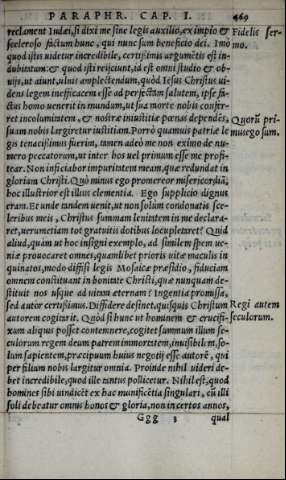 PARAPHR. CAP. I. 469
reclament Iudæi, si dixi me sine legis auxilio, ex impio &
sceleroso factum hunc, qui nunc sum beneficio dei. Imo
quod istis uidetur incredibile, certissimis argumētis est in-
dubitatum: & quod isti reijciunt, id est omni studio & ob-
uijs, ut aiunt, ulnis amplectendum, quòd Iesus Christus ui-
dens legem inefficacem esse ad perfectam salutem, ipse fa-
ctus homo uenerit in mundum, ut sua morte nobis confer-
ret incolumitatem, & nostræ iniustitiæ pœnas dependēs,
suam nobis largiretur iustitiam. Porrò quamuis patriæ le
gis tenacissimus fuerim, tamen adeò me non eximo de nu-
mero peccatorum, ut inter hos uel primum esse me profi-
tear. Non inficiabor impuritatem meam, quæ redundat in
gloriam Christi. Quò minus ego promereor misericordiā,
hoc illustrior est illius clementia. Ego supplicio dignus
eram. Et unde tandem uenit, ut non solùm condonatis sce-
leribus meis, Christus summam lenitatem in me declara-
ret, uerumetiam tot gratuitis dotibus locupletaret? Quid
aliud, quàm ut hoc insigni exemplo, ad similem spem ue-
niæ prouocaret omnes, quamlibet prioris uitæ maculis in
quinatos, modo diffisi legis Mosaicæ præsidio, fiduciam
omnem constituant in bonitate Christi, quæ nunquam de-
stituit nos usque ad uitam æternam? Ingentia promissa,
sed autor certissimus. Diffidere desinet, quisquis Christum
autorem cogitarit. Quòd si hunc ut hominem & crucifi-
xum aliquis posset contemnere, cogitet summum illum se-
culorum regem deum patrem immortalem, inuisibilem, so-
lum sapientem, præcipuum huius negotij esse autorē, qui
per filium nobis largitur omnia. Proinde nihil uideri de-
bet incredibile, quod ille tantus pollicetur. Nihil est, quod
homines sibi uindicēt ex hac munificētia singulari, cū illi
soli debeatur omnis honos & gloria, non in certos annos,
Ggg 3 qual
Fidelis ser-
mo.
Quorū pri-
mus ego sum.
Regi autem
seculorum.